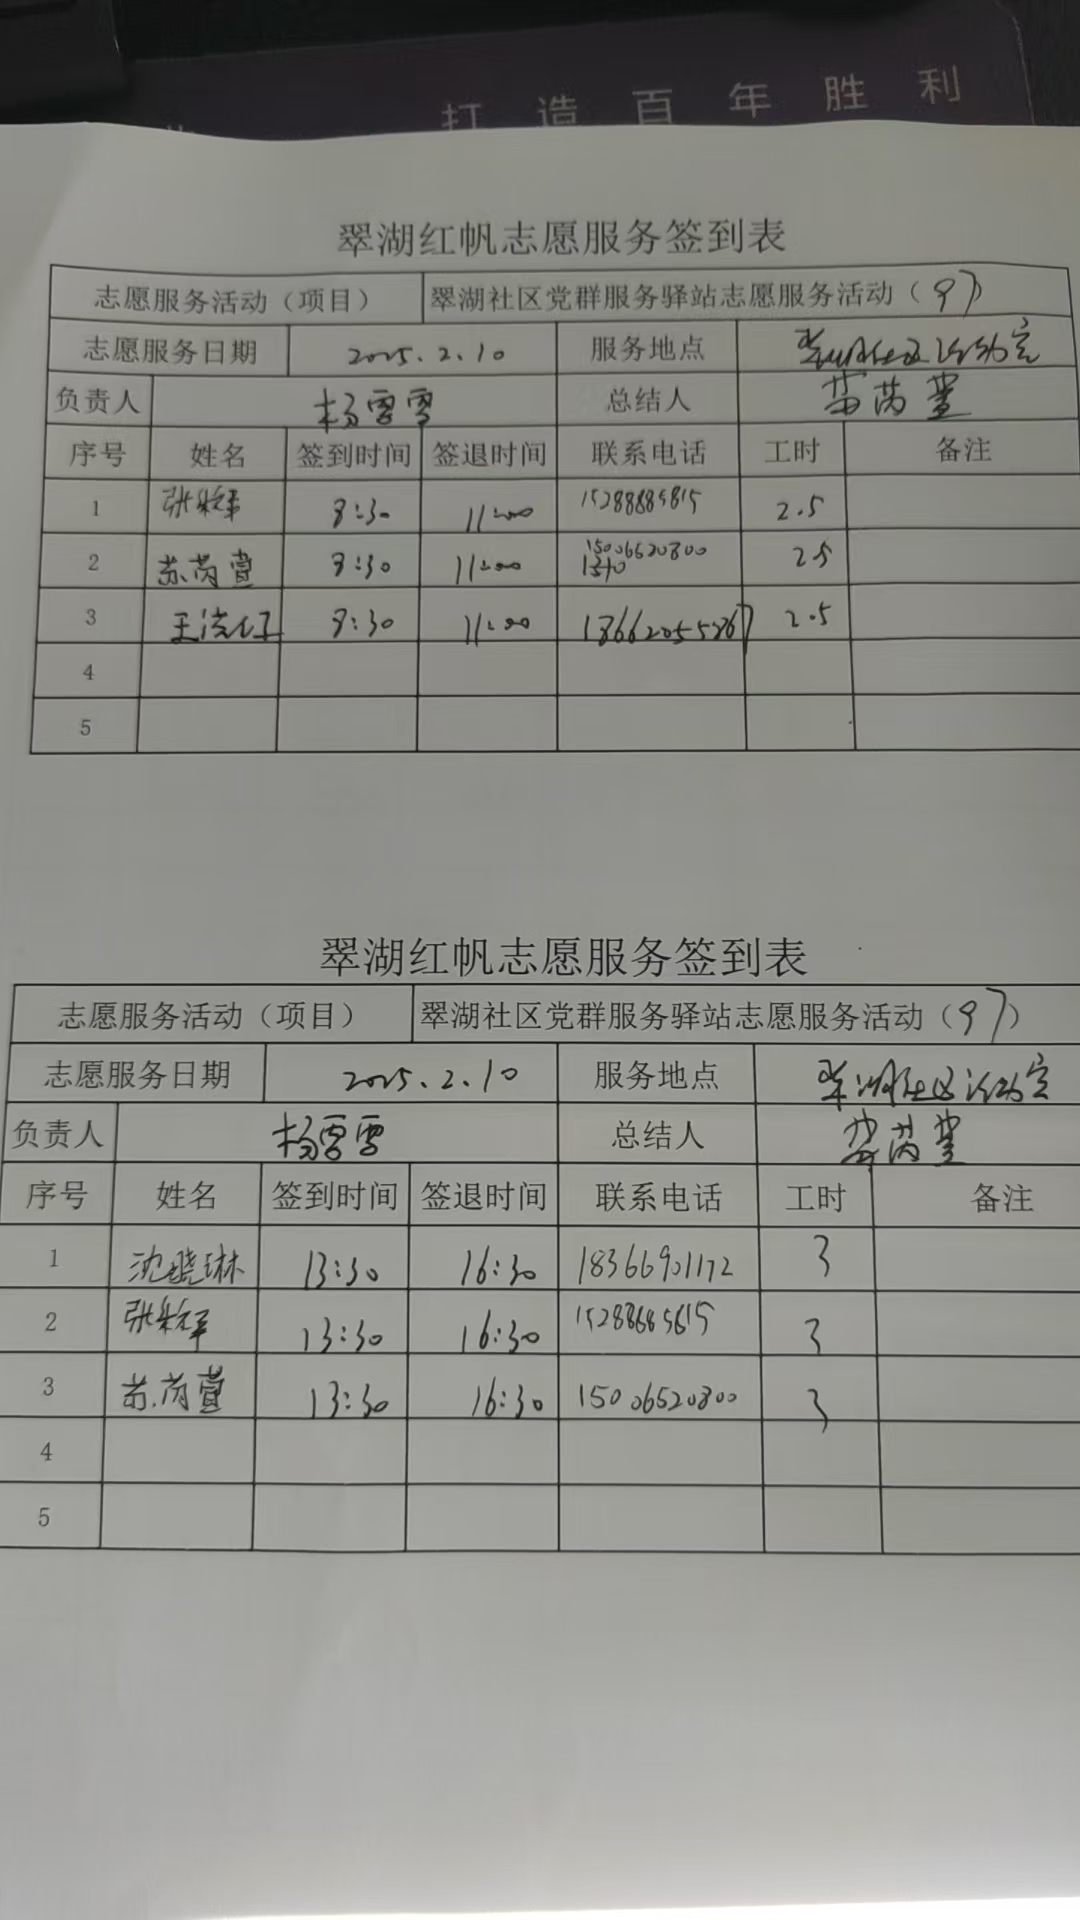 打造百年胜利
翠湖红帆志愿服务签到表
志愿服务活动（项目） 翠湖社区党群服务驿站志愿服务活动（97）
志愿服务日期 2025.2.10 服务地点 翠湖社区活动室
负责人 杨雪雪 总结人 苏芮萱
序号 姓名 签到时间 签退时间 联系电话 工时 备注
1 张 8:30 11:00 2.5
2 苏芮萱 8:30 11:00 15006520800 2.5
3 王 8:30 11:00 2.5
4
5
翠湖红帆志愿服务签到表
志愿服务活动（项目） 翠湖社区党群服务驿站志愿服务活动（97）
志愿服务日期 2025.2.10 服务地点 翠湖社区活动室
负责人 杨雪雪 总结人 苏芮萱
序号 姓名 签到时间 签退时间 联系电话 工时 备注
1 沈晓琳 13:30 16:30 18366901172 3
2 张 13:30 16:30 3
3 苏芮萱 13:30 16:30 15006520800 3
4
5